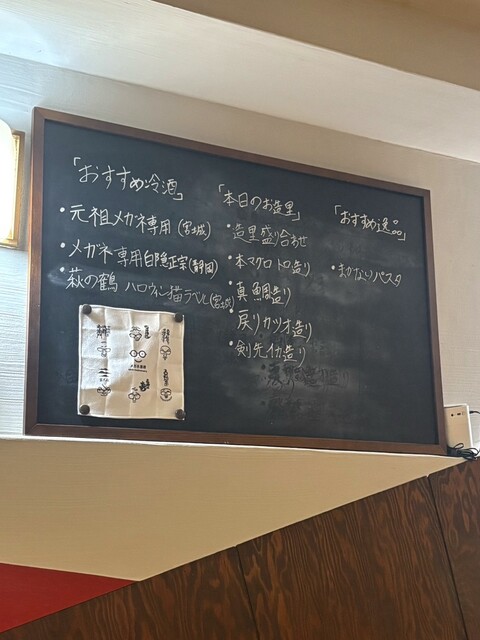 「おすすめ冷酒」
・元祖メガネ専用(宮城)
・メガネ専用白隠正宗(静岡)
・萩の鶴 ハロウィン猫ラベル(宮城)
「本日のお造里」
・造里盛り合わせ
・本マグロトロ造り
・真鯛造り
・戻りカツオ造り
・剣先イカ造り
「おすすめ逸品」
・まかないパスタ